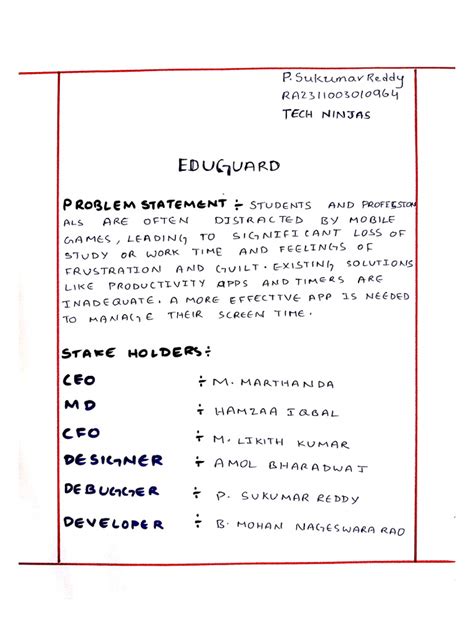 P. Sukumar Reddy
RA2311003010964
TECH NINJAS
EDUGUARD
PROBLEM STATEMENT ÷ STUDENTS AND PROFESSION
ALS ARE OFTEN DISTRACTED BY MOBILE
GAMES, LEADING TO SIGNIFICANT LOSS OF
STUDY OR WORK TIME AND FEELINGS OF
FRUSTRATION AND GUILT. EXISTING SOLUTIONS
LIKE PRODUCTIVITY APPS AND TIMERS ARE
INADEQUATE. A MORE EFFECTIVE APP IS NEEDED
TO MANAGE THEIR SCREEN TIME.
STAKE HOLDERS ÷
CEO ÷ M. MARTHANDA
MD ÷ HAMZAA IQBAL
CFO ÷ M. LIKITH KUMAR
DESIGNER ÷ AMOL BHARADWAJ
DEBUGGER ÷ P. SUKUMAR REDDY
DEVELOPER ÷ B. MOHAN NAGESWARA RAO